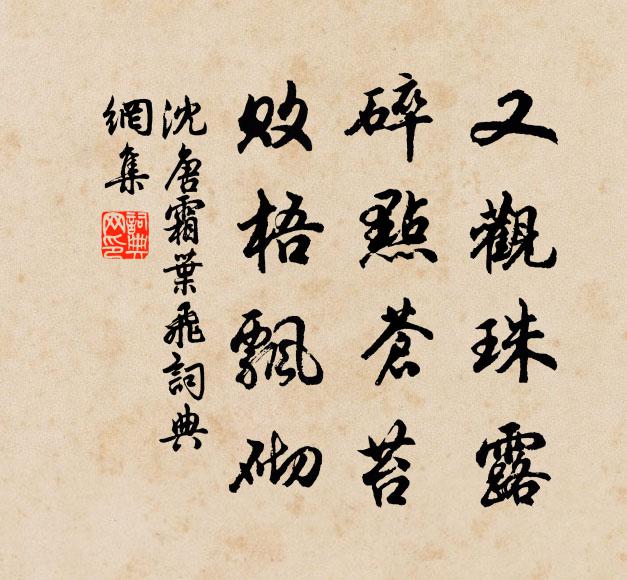 又觀珠露
碎點蒼苔
敗梧飄砌
沈唐霜葉飛詞典
網集
詞典網印